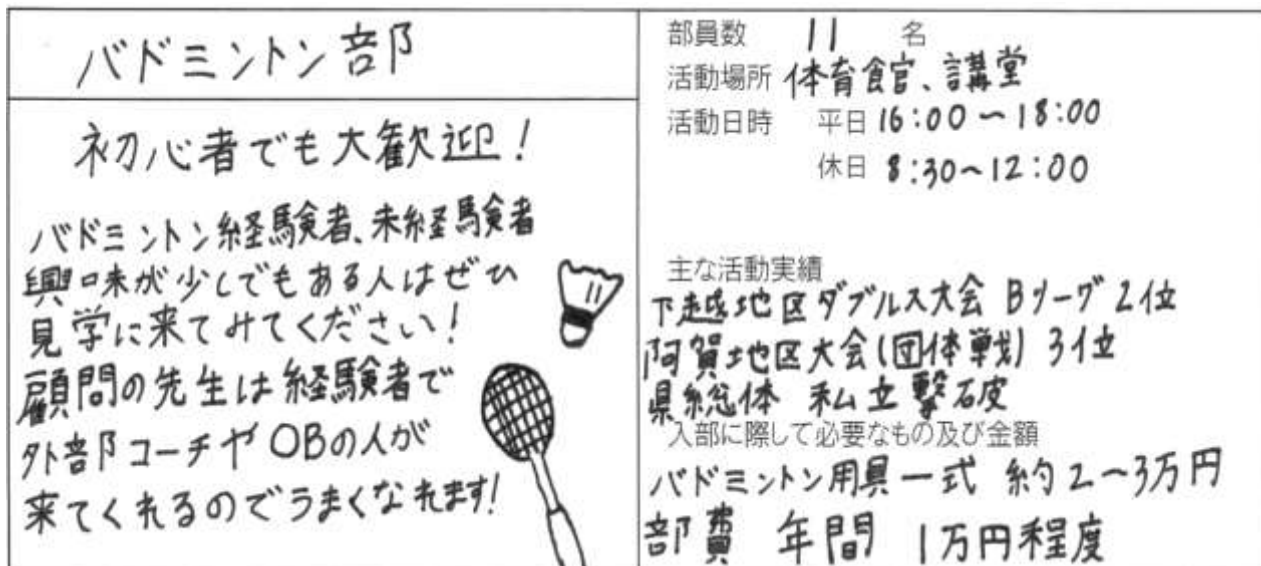 バドミントン部
初心者でも大歓迎！
バドミントン経験者、未経験者
興味が少しでもある人はぜひ
見学に来てみてください！
顧問の先生は経験者で
外部コーチやOBの人が
来てくれるのでうまくなれます！
部員数 11 名
活動場所 体育館、講堂
活動日時 平日 16:00～18:00
休日 8:30～12:00
主な活動実績
下越地区ダブルス大会 Bリーグ2位
阿賀地区大会(団体戦) 3位
県総体 私立撃破
入部に際して必要なもの及び金額
バドミントン用具一式 約2～3万円
部費 年間 1万円程度